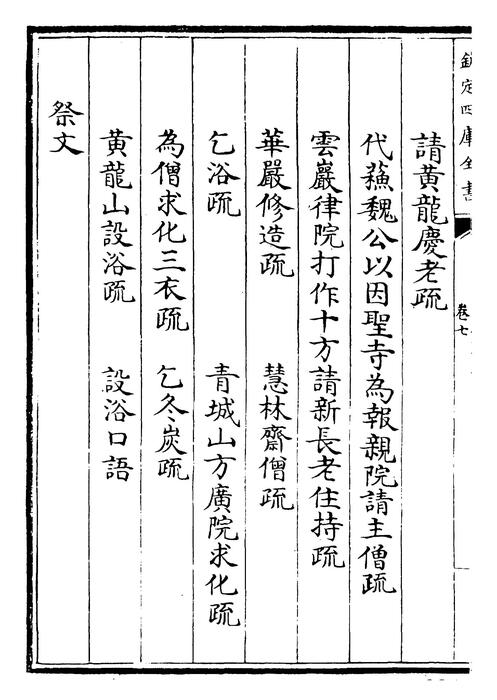 欽定四庫全書
卷七
請黃龍慶老疏
代蘓魏公以因聖寺為報親院請主僧疏
雲巖律院打作十方請新長老住持疏
華嚴修造疏 慧林齋僧疏
乞浴疏 青城山方廣院求化疏
為僧求化三衣疏 乞冬炭疏
黃龍山設浴疏 設浴口語
祭文